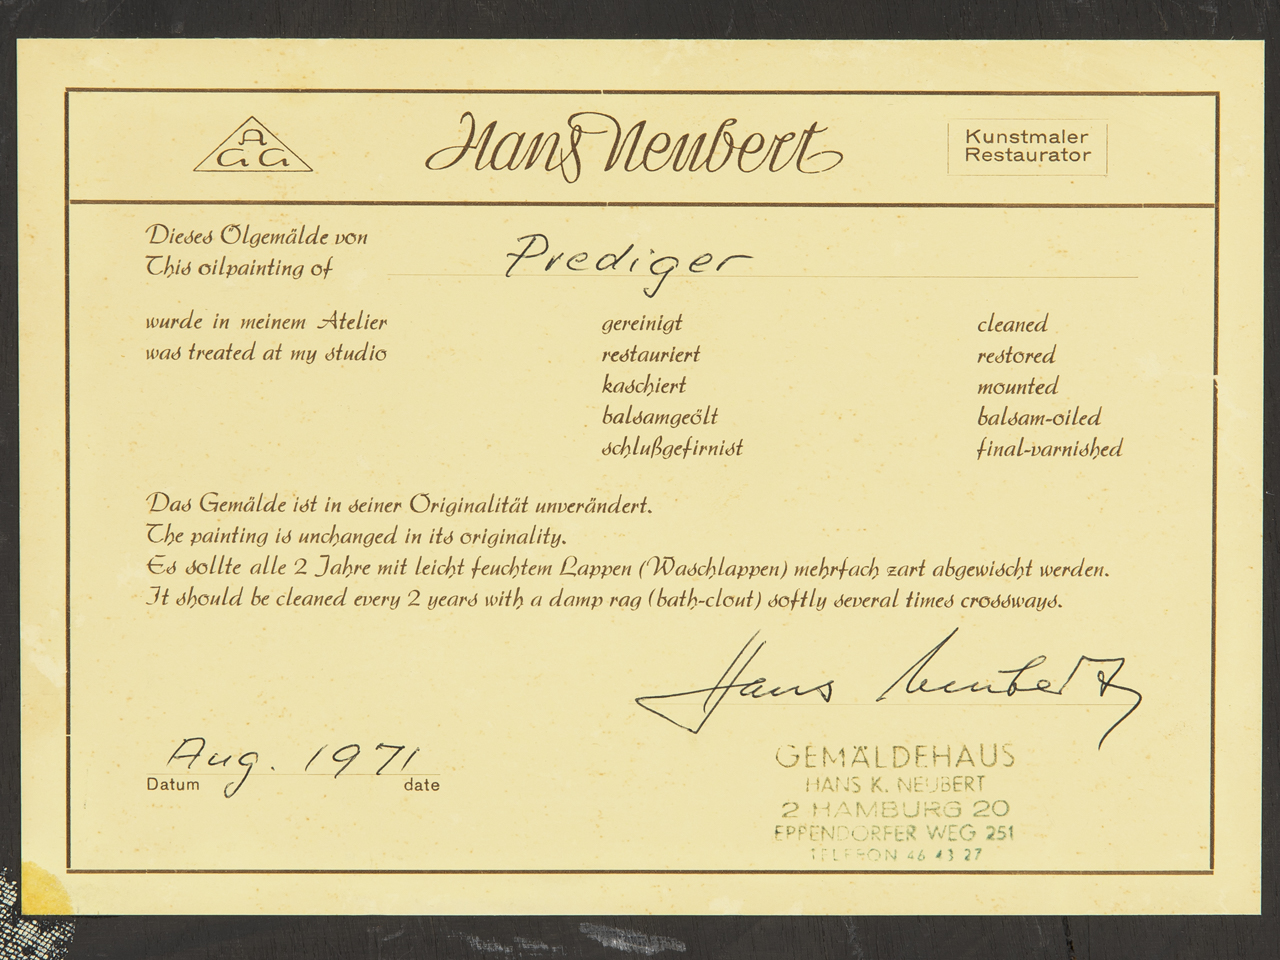 A
GG
Hans Neubert
Kunstmaler
Restaurator
Dieses Ölgemälde von
This oilpainting of
Prediger
wurde in meinem Atelier
was treated at my studio
gereinigt
restauriert
kaschiert
balsamgeölt
schlußgefirnist
cleaned
restored
mounted
balsam-oiled
final-varnished
Das Gemälde ist in seiner Originalität unverändert.
The painting is unchanged in its originality.
Es sollte alle 2 Jahre mit leicht feuchtem Lappen (Waschlappen) mehrfach zart abgewischt werden.
It should be cleaned every 2 years with a damp rag (bath-clout) softly several times crossways.
Hans Neubert
Aug. 1971
Datum date
GEMÄLDEHAUS
HANS K. NEUBERT
2 HAMBURG 20
EPPENDORFER WEG 251
TELEFON 46 43 27